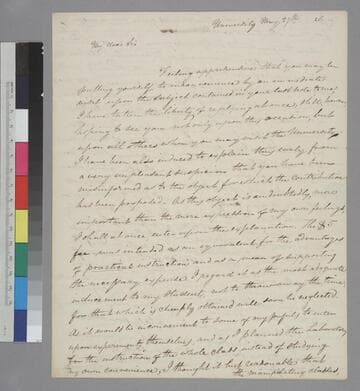 University May 27th 26
My dear Sir
Feeling apprehensive that you may be
putting yourself to inconvenience by an immediate
visit upon the subject contained in your last note to me,
I have taken the liberty of writing at once, still, however
hoping to see you not only upon this occasion, but
upon all others when you may visit the University
I have been also induced to explain thus early from
a very unpleasant suspicion that you have been
misinformed as to the object for which the contribution
has been proposed. As this object is undoubtedly more
important than the mere expression of my own feelings,
I shall at once enter upon the explanation. The $5
fee was intended as an equivalent for the advantages
of practical instruction and as a mean of supporting
the necessary expenses I regard it as the most adequate
inducement to my Students, not to throw away the time,
for that which is cheaply obtained will soon be neglected
As it would be inconvenient to some of my pupils to incur
expense themselves, and as I planned the Laboratory
for the instruction of the whole class instead of studying
my own convenience, I thought it but reasonable that
the manipulating classes,